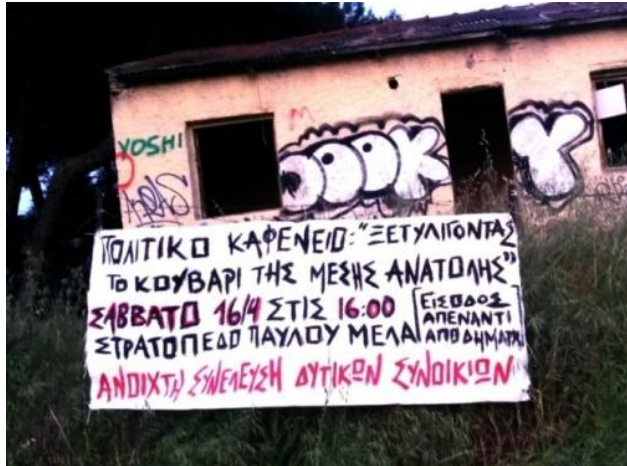 YOSHI
OOOK Y
ΠΟΛΙΤΙΚΟ ΚΑΦΕΝΕΙΟ: "ΞΕΤΥΛΙΓΟΝΤΑΣ
ΤΟ ΚΟΥΒΑΡΙ ΤΗΣ ΜΕΣΗΣ ΑΝΑΤΟΛΗΣ"
ΣΑΒΒΑΤΟ 16/4 ΣΤΙΣ 16:00 [ΕΙΣΟΔΟΣ
ΑΠΕΝΑΝΤΙ
ΣΤΡΑΤΟΠΕΔΟ ΠΑΥΛΟΥ ΜΕΛΑ ΑΠΟ ΔΗΜΑΡΧ]
ΑΝΟΙΧΤΗ ΣΥΝΕΛΕΥΣΗ ΔΥΤΙΚΩΝ ΣΥΝΟΙΚΙΩΝ